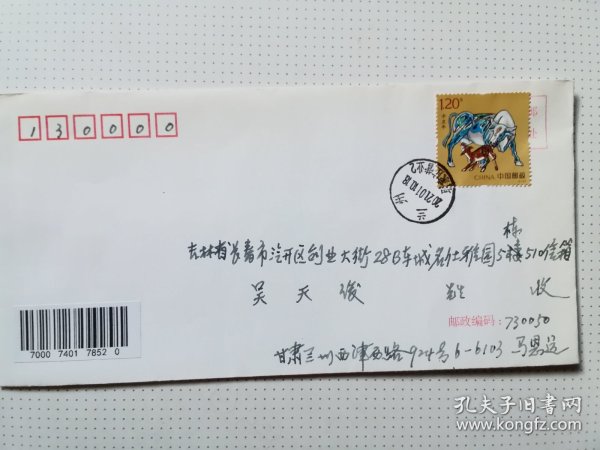 130000
1.20元
辛丑年
CHINA 中国邮政
2021.01.10.18
兰州
栋
吉林省长春市汽开区创业大街28号车城名仕雅园5楼510信箱
吴天 收
邮政编码:730050
甘肃兰州西津西路924号6-6103 马恩远
7000 7401 7852 0
孔夫子旧书网
www.kongfz.com